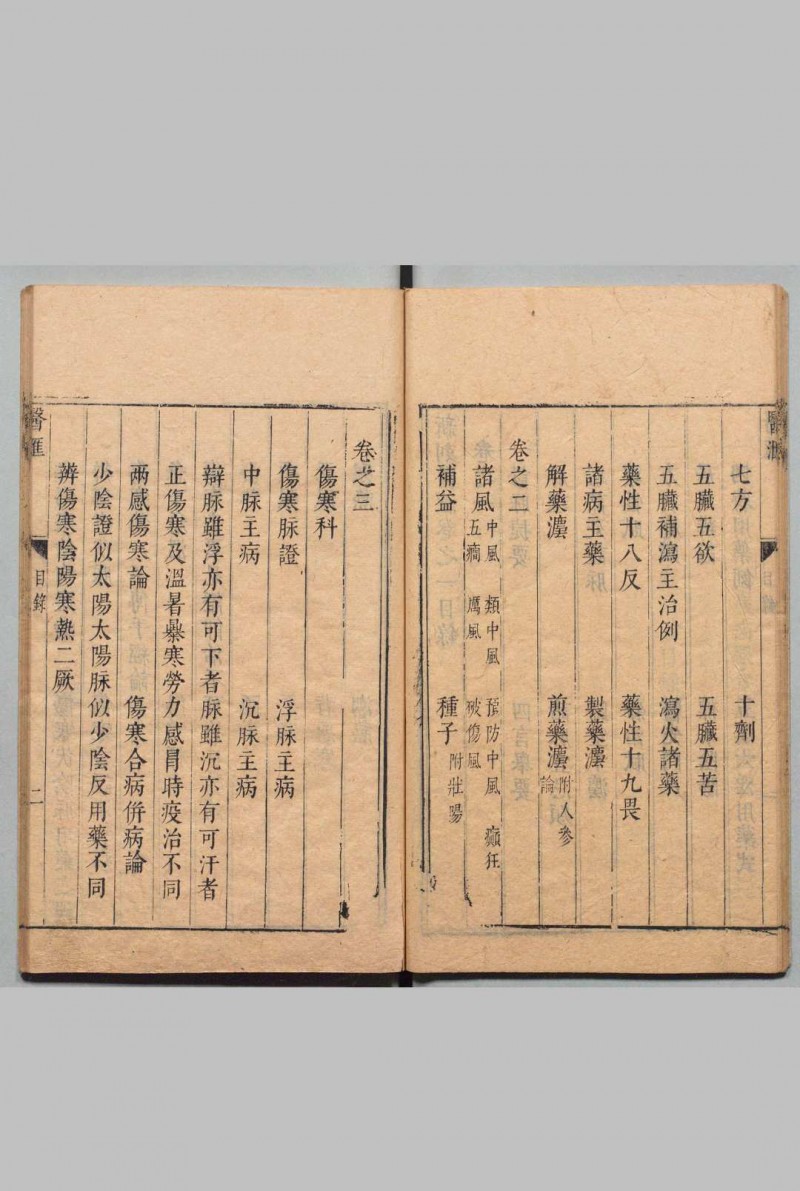 醫滙
目錄
七方 十劑
五臟五欲 五臟五苦
五臟補瀉主治例 瀉火諸藥
藥性十八反 藥性十九畏
諸病主藥 製藥灋
解藥灋 煎藥灋 附人參論
卷之二
諸風 中風 類中風 預防中風 癲狂
五癎 厲風 破傷風
補益 種子 附壯陽
卷之三
傷寒科
傷寒脉證 浮脉主病
中脉主病 沉脉主病
辯脉雖浮亦有可下者脉雖沉亦有可汗者
正傷寒及溫暑暴寒勞力感冒時疫治不同
兩感傷寒論 傷寒合病併病論
少陰證似太陽太陽脉似少陰反用藥不同
辨傷寒陰陽寒熱二厥
醫滙
目錄
二